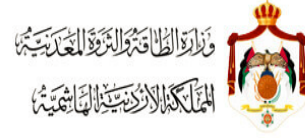 وَزَارَةُ الطَّاقَةِ وَالثَّرْوَةِ المَعْدِنِيَّةِ
المَمْلَكَةُ الأُرْدُنِيَّةُ الهَاشِمِيَّةُ